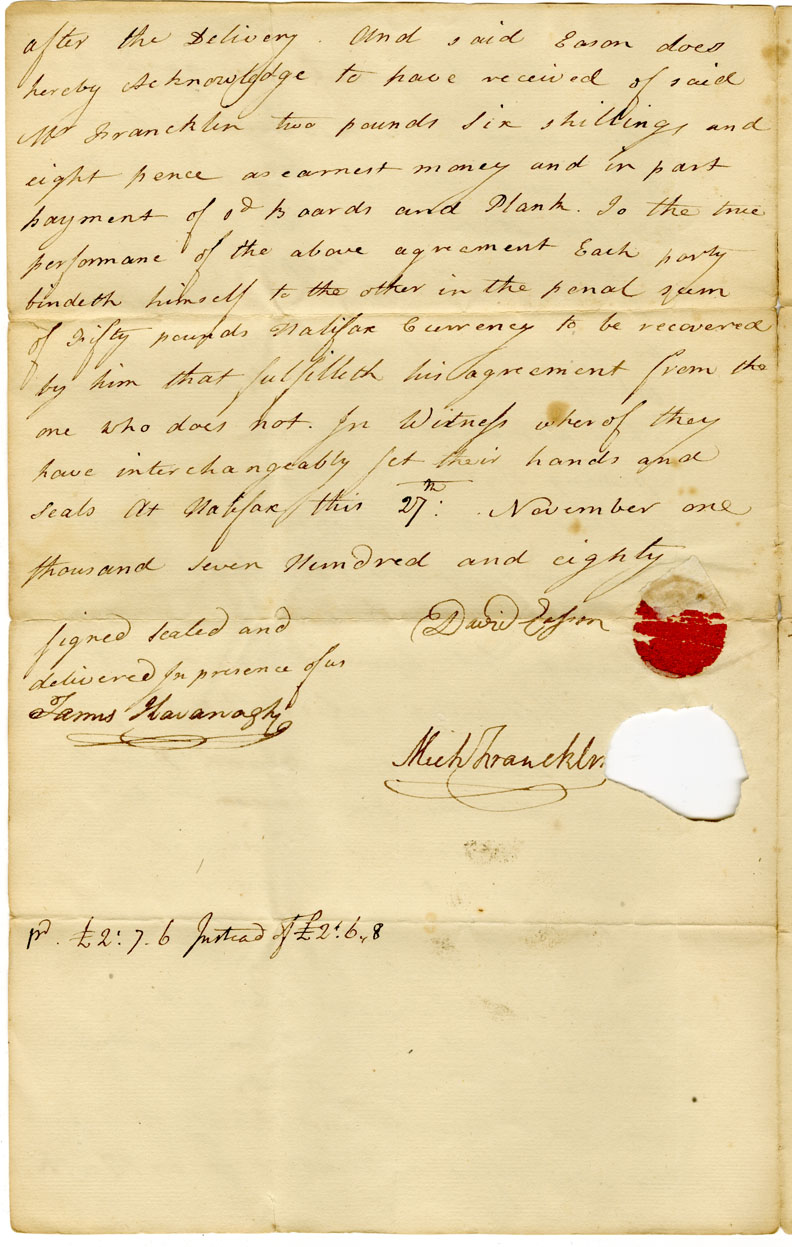 after the Delivery. And said Eason does
hereby Acknowlodge to have received of said
Mr Francklin two pounds Six shillings and
eight pence as earnest money and in part
payment of sd Boards and Plank. To the true
performane of the above agreement Each party
bindeth himself to the other in the penal sum
of Fifty pounds Halifax Currency to be recovered
by him that fulfilleth his agreement from the
one who does not. In Witness wherof they
have interchangeably set their hands and
Seals At Halifax this 27th: November one
thousand Seven Hundred and eighty
signed sealed and
delivered In presence of us
James Kavanagh
David Eason
Mich Francklin
pd. £2:7.6 Instead of £2:6,,8